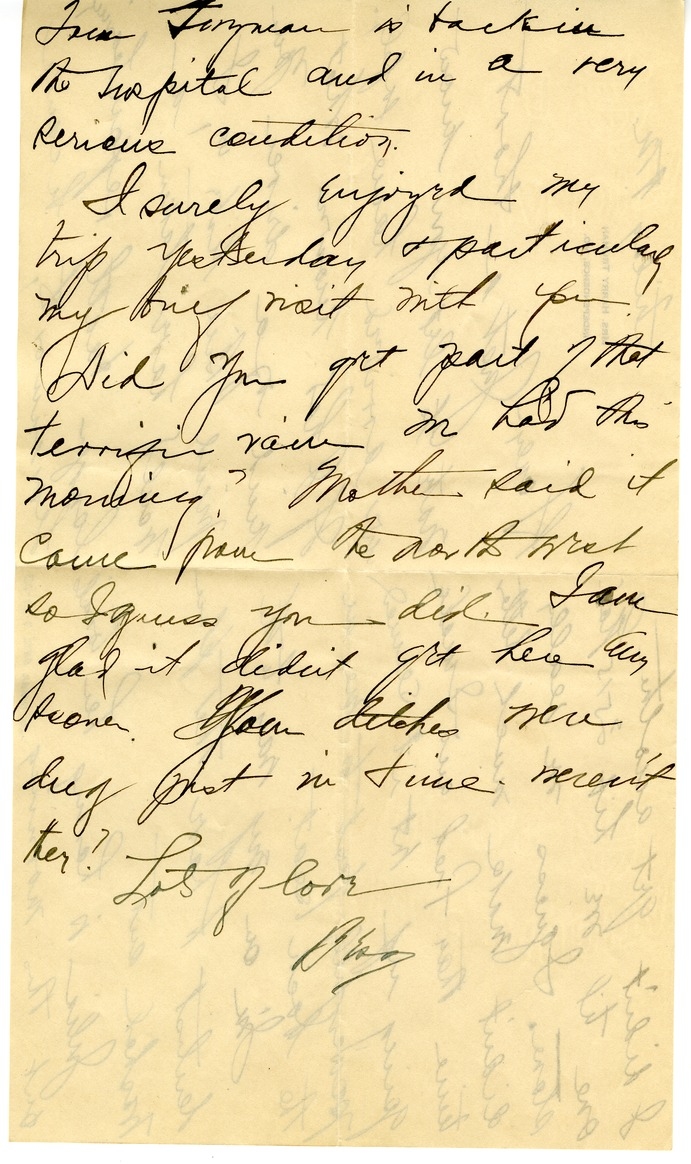 Tom Twyman is back in
the hospital and in a very
serious condition.
I surely enjoyed my
trip yesterday & particularly
my brief visit with you.
Did you get part of that
terrific rain we had this
morning? Mother said it
came from the north west
so I guess you did. I am
glad it didn't get here any
sooner. Your ditches were
dug just in time - weren't
they?
Lots of love